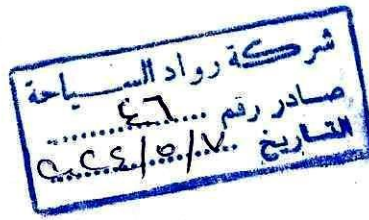 شركة رواد السياحة
صادر رقم ٤٦
التاريخ ٢٠٢٤/٥/٧